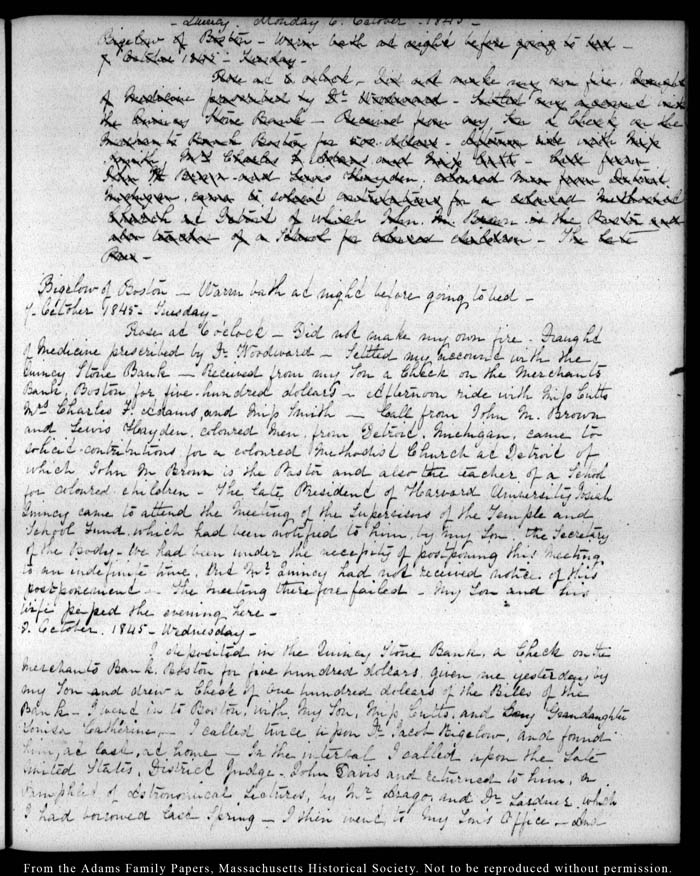 - Quincy. Monday 6. October. 1845 -
Bigelow of Boston - Warm bath at night before going to bed -
7 October 1845 - Tuesday -
Rose at 6 o'clock - Did not make my own fire. Draught
of Medicine prescribed by Dr. Woodward - Settled my account with
the Quincy Stone Bank - Received from my Son a Check on the
Merchants Bank Boston for 500 dollars - Afternoon ride with Miss
Smith, Mrs Charles F. Adams and Miss Cutts - Call from
John M. Brown and Lewis Hayden, coloured men from Detroit,
Michigan, came to solicit contributions for a coloured Methodist
Church at Detroit of which John M. Brown is the Pastor and
also teacher of a School for coloured children - The late
Pres -
Bigelow of Boston - Warm bath at night before going to bed -
7. October 1845 - Tuesday -
Rose at 6 o'clock - Did not make my own fire. Draught
of Medicine prescribed by Dr. Woodward - Settled my account with the
Quincy Stone Bank - Received from my Son a Check on the Merchants
Bank, Boston, for five hundred dollars - Afternoon ride with Miss Cutts
Mrs Charles F. Adams, and Miss Smith - Call from John M. Brown
and Lewis Hayden, coloured Men, from Detroit, Michigan, came to
solicit contributions for a coloured Methodist Church at Detroit of
which John M Brown is the Pastor and also the teacher of a School
for coloured children - The Late President of Harvard University Josiah
Quincy came to attend the Meeting of the Supervisors of the Temple and
School Fund, which had been notified to him, by my Son, the Secretary
of the Body - We had been under the necessity of postponing this Meeting
to an indefinite time, but Mr. Quincy had not received notice of this
postponement - The Meeting therefore failed - My Son and his
Wife passed the evening here -
8. October. 1845 - Wednesday -
I deposited in the Quincy Stone Bank, a Check on the
Merchants Bank, Boston for five hundred dollars, given me yesterday by
my Son and drew a Check of one hundred dollars of the Bills of the
Bank - I went in to Boston, with My Son, Miss Cutts, and Grandaughter
Louisa Catherine, - I called twice upon Dr. Jacob Bigelow, and found
him, at last, at home - In the interval, I called upon the Late
United States, District Judge, John Davis and returned to him, a
Pamphlet of Astronomical Lectures, by Mr. Arago, and Dr. Lardner, which
I had borrowed last Spring - I then went to My Son's Office - And
From the Adams Family Papers, Massachusetts Historical Society. Not to be reproduced without permission.